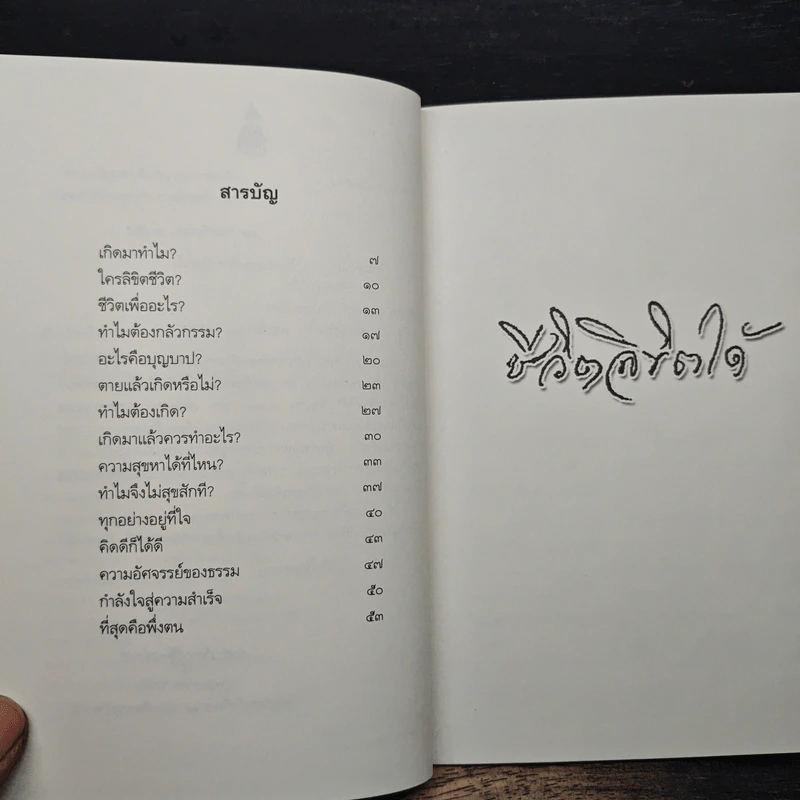 สารบัญ
เกิดมาทำไม? ๗
ใครลิขิตชีวิต? ๑๐
ชีวิตเพื่ออะไร? ๑๓
ทำไมต้องกลัวกรรม? ๑๗
อะไรคือบุญบาป? ๒๐
ตายแล้วเกิดหรือไม่? ๒๓
ทำไมต้องเกิด? ๒๗
เกิดมาแล้วควรทำอะไร? ๓๐
ความสุขหาได้ที่ไหน? ๓๓
ทำไมจึงไม่สุขสักที? ๓๗
ทุกอย่างอยู่ที่ใจ ๔๐
คิดดีก็ได้ดี ๔๓
ความอัศจรรย์ของธรรม ๔๗
กำลังใจสู่ความสำเร็จ ๕๐
ที่สุดคือพึ่งตน ๕๓
ชีวิตลิขิตได้